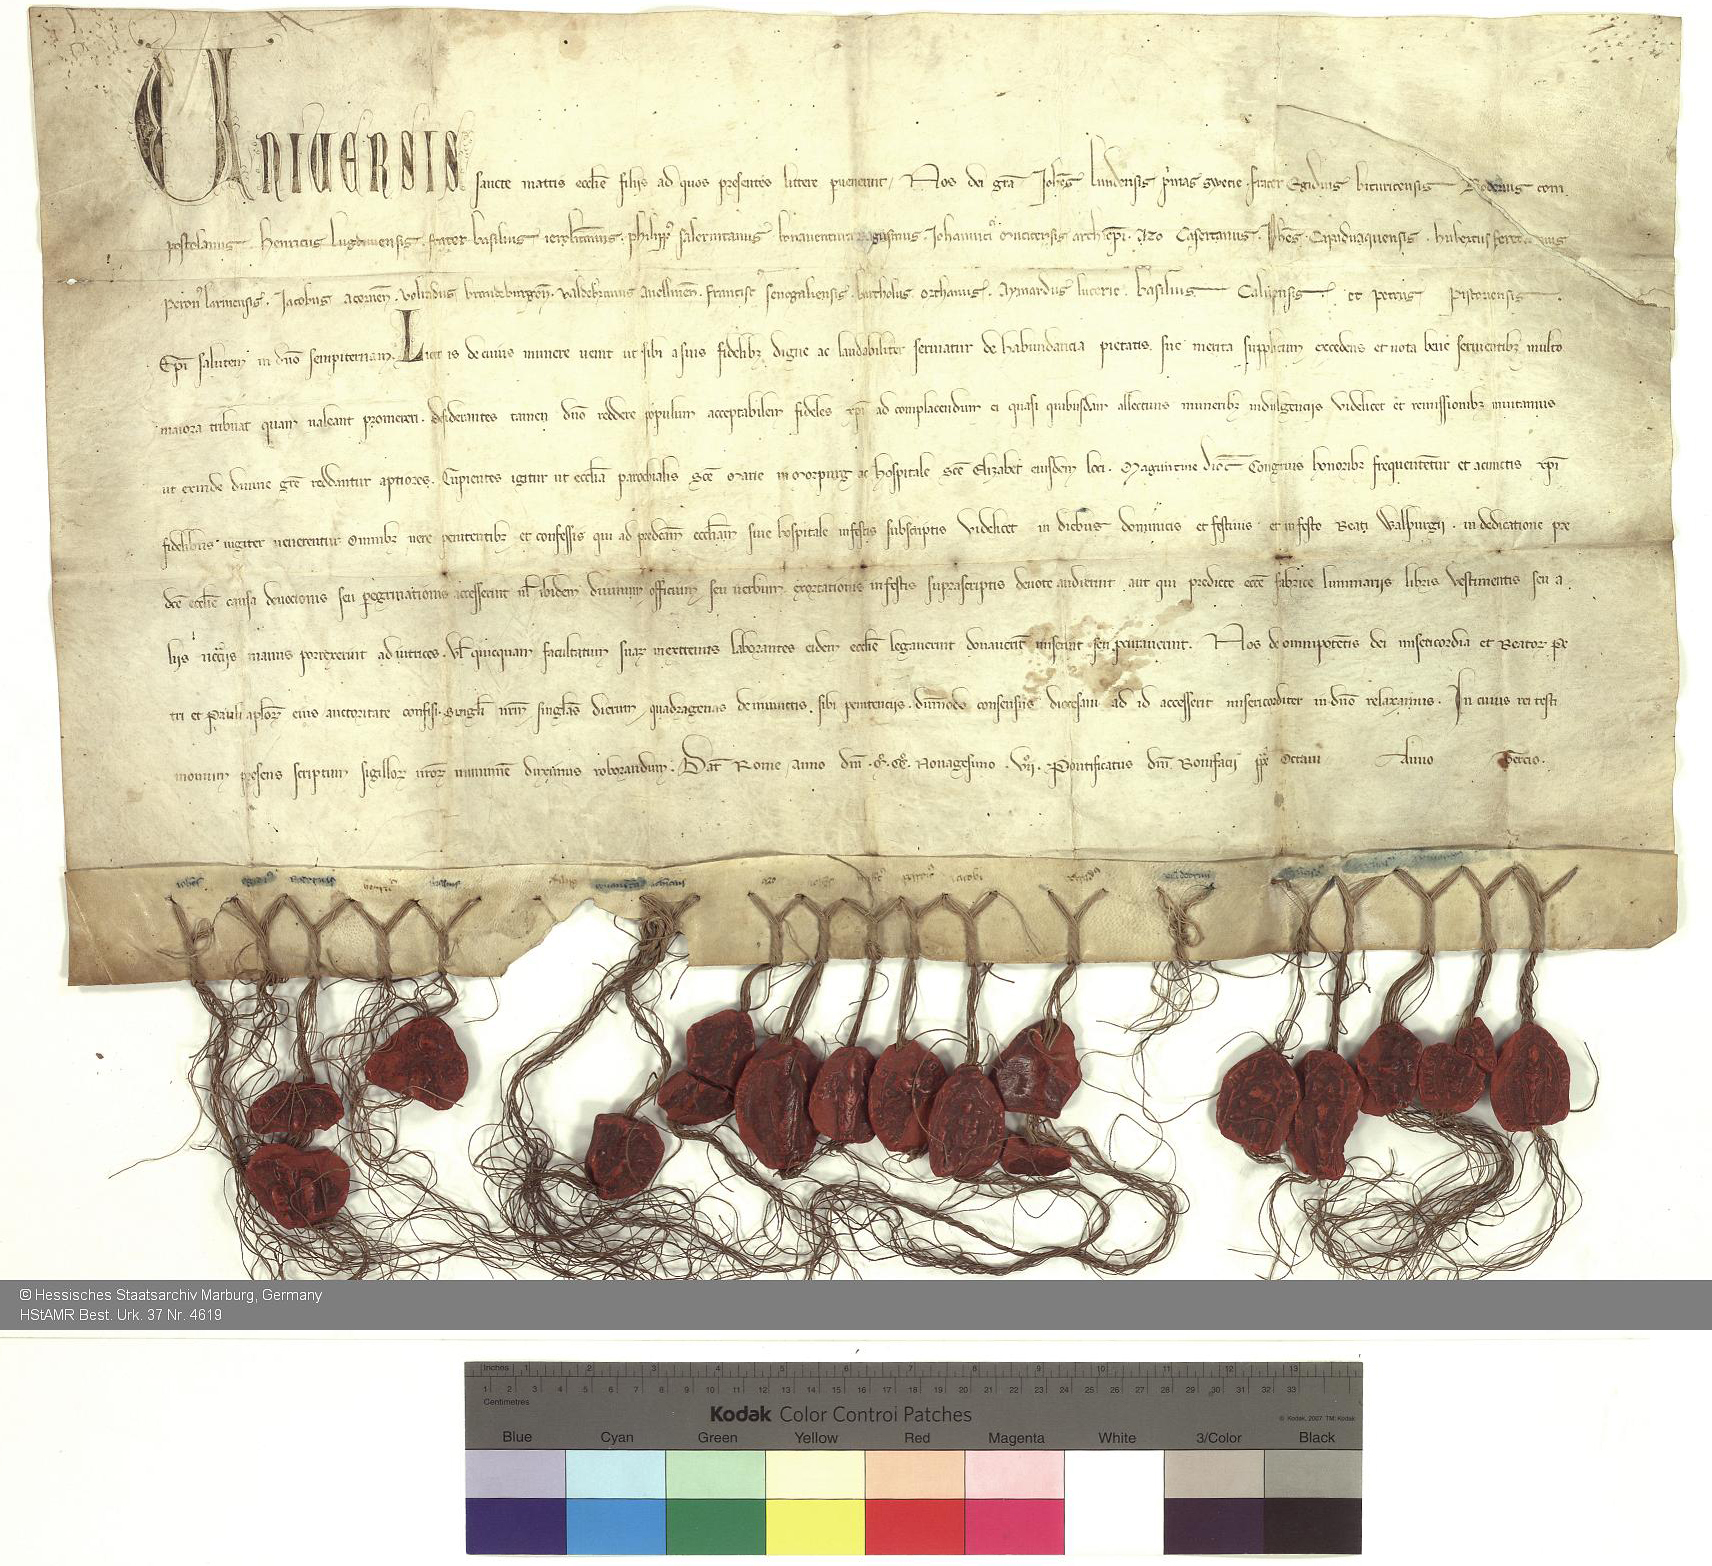 UNIVERSIS sancte matris ecclie filiis ad quos presentes littere puenerint Nos dei gra Johes lundensis primas swetie frater Egidius bituricensis Rodericus com
postolanus Henricus lugdunensis frater basilius ierosolitanus philipp salernitanus bonauentura ragusinus Johannici archiepi Azo Casertanus Johes Capudaquensis hubertus
Peron larinensis Jacobus acernen volradus brandeburgen valdebrunus auellinen francisc senogaliensis Aymardus lucerie basilius et petrus
Epi salutem in dno sempiternam Licet is de cuius munere uenit ut sibi a suis fidelibz digne ac laudabiliter seruiatur de habundancia pietatis sue merita supplicum excedens et uota bene seruientibz multo
maiora tribuat quam ualeant promereri desiderantes tamen dno reddere populum acceptabilem fideles xpi ad complacendum ei quasi quibusdam allectiuis muneribz indulgenciis videlicet et remissionibz inuitamus
ut exinde diuine gre reddantur aptiores Cupientes igitur ut ecclia parochialis sce Marie in Morpurg ac hospitale sce Elizabet eiusdem loci Maguntine dioc Congruis honoribz frequentetur et a cunctis xpi
fidelibus iugiter ueneretur Omnibz uere penitentibz et confessis qui ad predcam eccliam siue hospitale in festis subscriptis videlicet in diebus dominicis et festiuis et in festo Beati Walpurgii in dedicatione pre
dce ecclie causa deuocionis seu peregrinationis accesserint ul ibidem diuinum officium seu uerbum exortationis in festis suprascriptis deuote audierint aut qui predicte ecce fabrice luminariis libris vestimentis seu a
liis nccriis manus porrexerint adiutrices Vl quicquam facultatum suar in extremis laborantes eidem ecclie legauerint donauerint miserint seu Nos de omnipotentis dei misericordia et Beator pe
tri et Pauli aplor eius auctoritate confisi Singli nrm singlas dierum quadragenas de iniunctis sibi penitenciis dummodo consensus diocesani ad id accesserit misericorditer in dno relaxamus In cuius rei testi
monium presens scriptum sigillor nror munimine duximus roborandum Dat Rome anno dni M CC Nonagesimo vii Pontificatus dni Bonifacii pp Octaui Anno Tercio
© Hessisches Staatsarchiv Marburg, Germany
HStAMR Best. Urk. 37 Nr. 4619
Inches 1 2 3 4 5 6 7 8 9 10 11 12 13
1 2 3 4 5 6 7 8 9 10 11 12 13 14 15 16 17 18 19 20 21 22 23 24 25 26 27 28 29 30 31 32 33
Centimetres
Kodak Color Control Patches
© Kodak, 2007 TM: Kodak
Blue Cyan Green Yellow Red Magenta White 3/Color Black